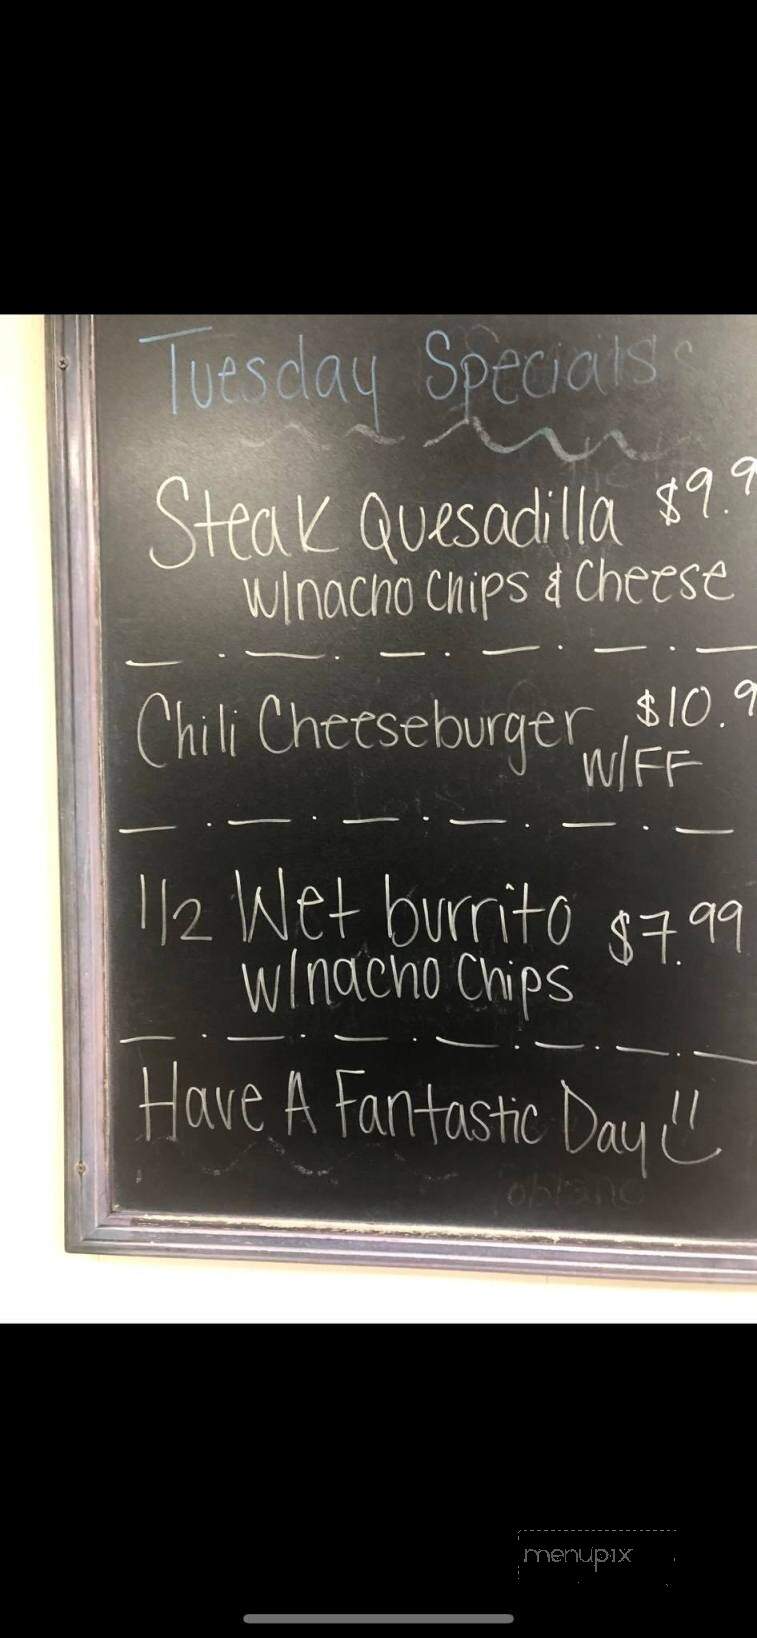 Tuesday Specials
Steak Quesadilla $9.9
W/nacho Chips & Cheese
Chili Cheeseburger $10.9
W/FF
1/2 Wet burrito $7.99
W/nacho Chips
Have A Fantastic Day
menupix